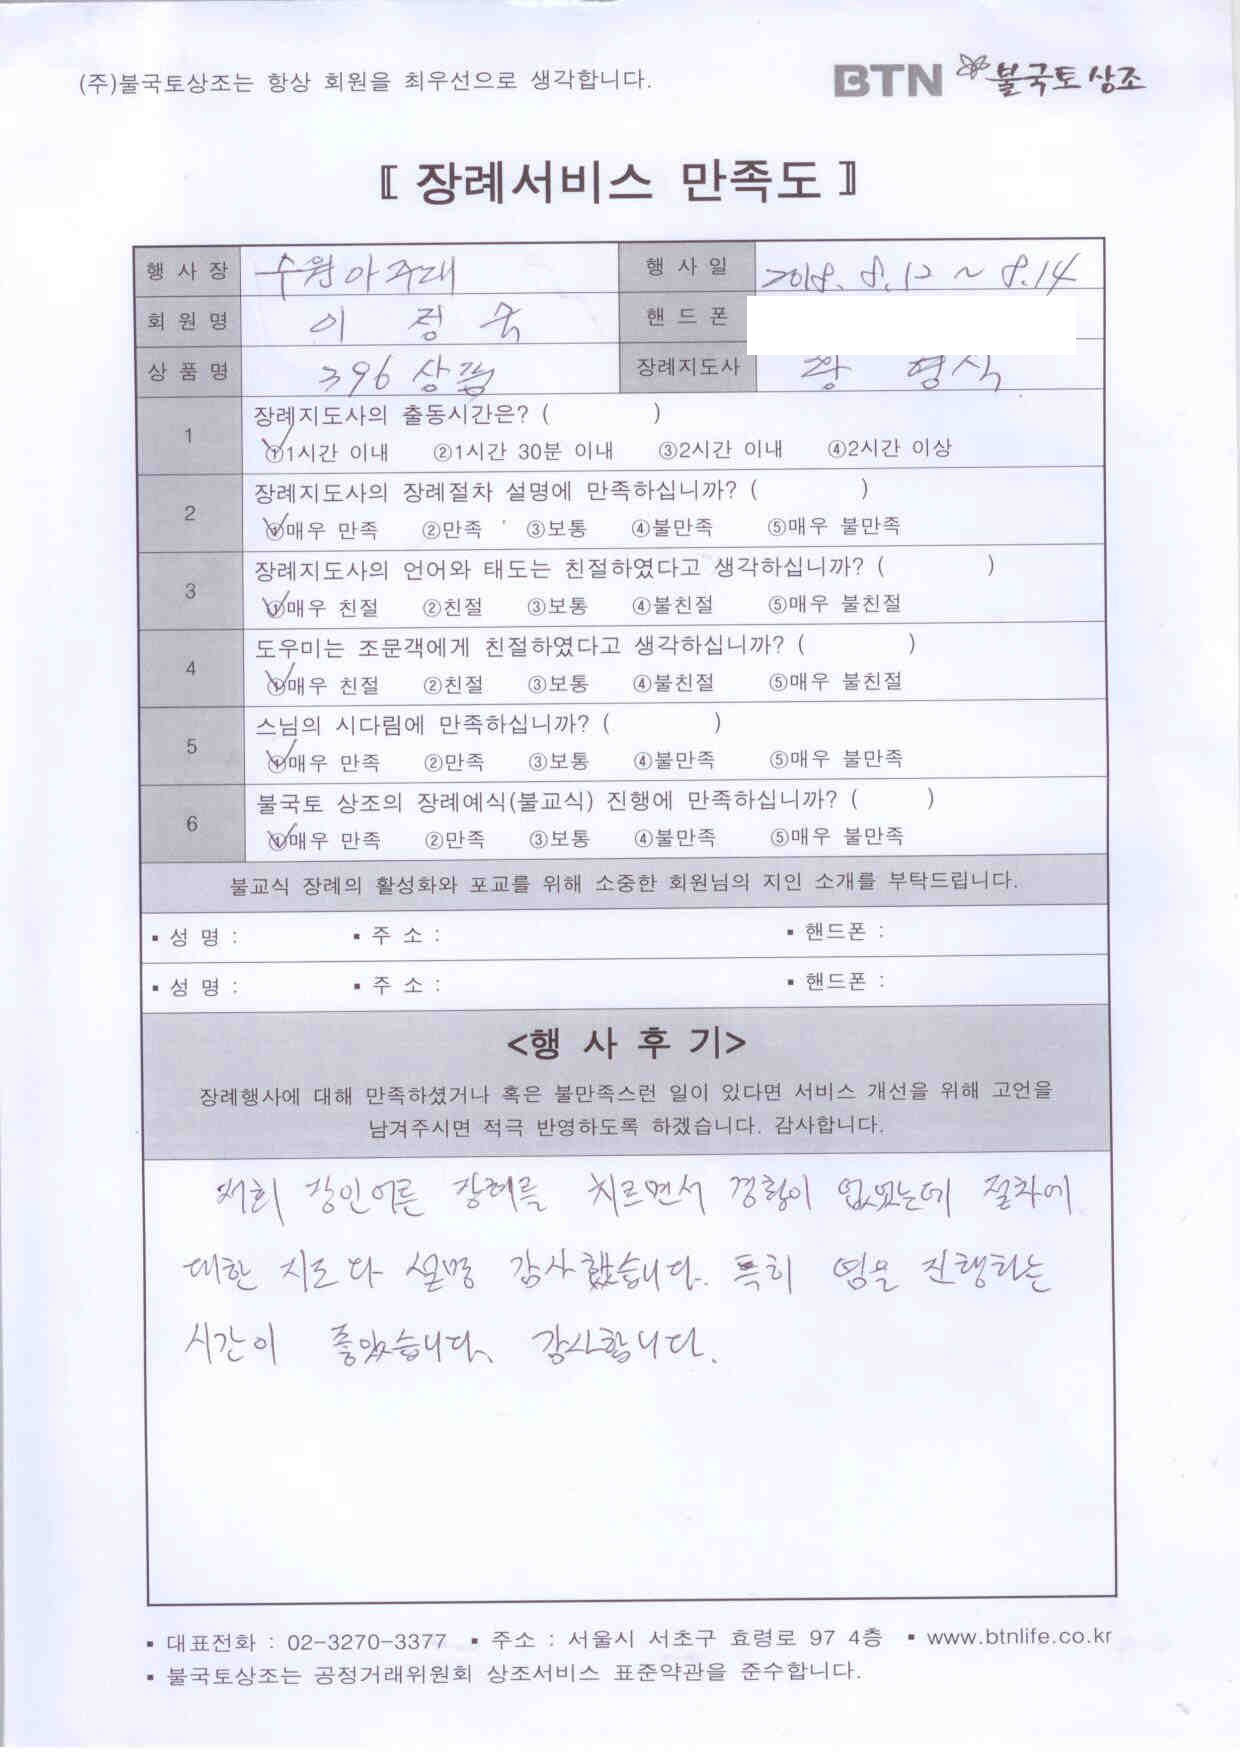 (주)불국토상조는 항상 회원을 최우선으로 생각합니다.
BTN 불국토 상조
〖 장례서비스 만족도 〗
행 사 장 수원아주대 행 사 일 2018. 8. 12 ~ 8. 14
회 원 명 이 정 국 핸 드 폰
상 품 명 396 상품 장례지도사 형식
1 장례지도사의 출동시간은? ( )
①1시간 이내 ②1시간 30분 이내 ③2시간 이내 ④2시간 이상
2 장례지도사의 장례절차 설명에 만족하십니까? ( )
①매우 만족 ②만족 ③보통 ④불만족 ⑤매우 불만족
3 장례지도사의 언어와 태도는 친절하였다고 생각하십니까? ( )
①매우 친절 ②친절 ③보통 ④불친절 ⑤매우 불친절
4 도우미는 조문객에게 친절하였다고 생각하십니까? ( )
①매우 친절 ②친절 ③보통 ④불친절 ⑤매우 불친절
5 스님의 시다림에 만족하십니까? ( )
①매우 만족 ②만족 ③보통 ④불만족 ⑤매우 불만족
6 불국토 상조의 장례예식(불교식) 진행에 만족하십니까? ( )
①매우 만족 ②만족 ③보통 ④불만족 ⑤매우 불만족
불교식 장례의 활성화와 포교를 위해 소중한 회원님의 지인 소개를 부탁드립니다.
▪ 성 명 : ▪ 주 소 : ▪ 핸드폰 :
▪ 성 명 : ▪ 주 소 : ▪ 핸드폰 :
<행 사 후 기>
장례행사에 대해 만족하셨거나 혹은 불만족스런 일이 있다면 서비스 개선을 위해 고언을
남겨주시면 적극 반영하도록 하겠습니다. 감사합니다.
저희 장인어른 장례를 치르면서 경황이 없었는데 절차에
대한 지도와 설명 감사했습니다. 특히 염을 진행하는
시간이 좋았습니다. 감사합니다.
▪ 대표전화 : 02-3270-3377 ▪ 주소 : 서울시 서초구 효령로 97 4층 ▪ www.btnlife.co.kr
▪ 불국토상조는 공정거래위원회 상조서비스 표준약관을 준수합니다.